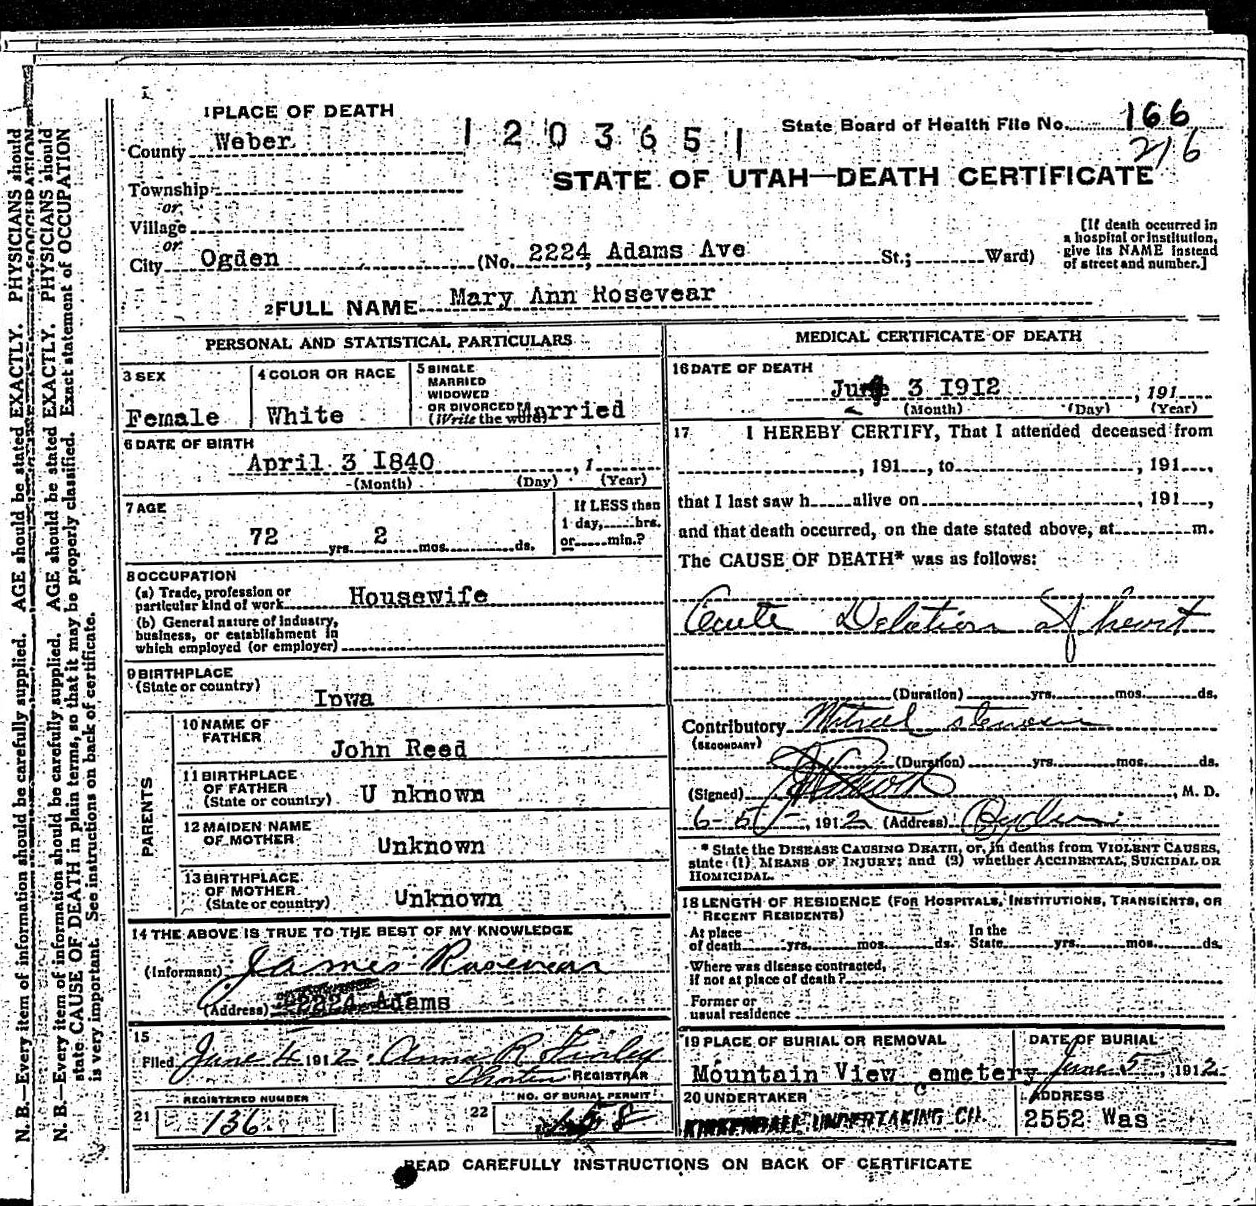 1 PLACE OF DEATH
County Weber
1203651
State Board of Health File No. 166
216
STATE OF UTAH—DEATH CERTIFICATE
Township
or
Village
or
City Ogden (No. 2224, Adams Ave St.; Ward)
[If death occurred in
a hospital or institution,
give its NAME instead
of street and number.]
2 FULL NAME Mary Ann Rosevear
PERSONAL AND STATISTICAL PARTICULARS
3 SEX
Female
4 COLOR OR RACE
White
5 SINGLE
MARRIED
WIDOWED
OR DIVORCED
(Write the word) Married
6 DATE OF BIRTH
April 3 I840 , 1
(Month) (Day) (Year)
7 AGE
72 yrs. 2 mos. ds.
If LESS than
1 day, hrs.
or min.?
8 OCCUPATION
(a) Trade, profession or
particular kind of work Housewife
(b) General nature of industry,
business, or establishment in
which employed (or employer)
9 BIRTHPLACE
(State or country)
Iowa
PARENTS
10 NAME OF
FATHER
John Reed
11 BIRTHPLACE
OF FATHER
(State or country) U nknown
12 MAIDEN NAME
OF MOTHER
Unknown
13 BIRTHPLACE
OF MOTHER
(State or country) Unknown
14 THE ABOVE IS TRUE TO THE BEST OF MY KNOWLEDGE
(Informant) James Rosevear
(Address) 2224 Adams
15
Filed June 4 1912. Anna R
REGISTRAR
REGISTERED NUMBER
21 136.
NO. OF BURIAL PERMIT
22 158
MEDICAL CERTIFICATE OF DEATH
16 DATE OF DEATH
June 3 I9I2 , 191
(Month) (Day) (Year)
17 I HEREBY CERTIFY, That I attended deceased from
, 191 , to , 191 ,
that I last saw h alive on , 191 ,
and that death occurred, on the date stated above, at m.
The CAUSE OF DEATH* was as follows:
Acute Delation of heart
(Duration) yrs. mos. ds.
Contributory Mitral stenosis
(SECONDARY)
(Duration) yrs. mos. ds.
(Signed) , M. D.
6-5-, 1912 (Address) Ogden
* State the DISEASE CAUSING DEATH, or, in deaths from VIOLENT CAUSES,
state (1) MEANS OF INJURY; and (2) whether ACCIDENTAL, SUICIDAL OR
HOMICIDAL.
18 LENGTH OF RESIDENCE (FOR HOSPITALS, INSTITUTIONS, TRANSIENTS, OR
RECENT RESIDENTS)
At place
of death yrs. mos. ds.
In the
State yrs. mos. ds.
Where was disease contracted,
if not at place of death?
Former or
usual residence
19 PLACE OF BURIAL OR REMOVAL
Mountain View Cemetery
DATE OF BURIAL
June 5, 1912
20 UNDERTAKER
KIRKENDALL UNDERTAKING CO.
ADDRESS
2552 Was
READ CAREFULLY INSTRUCTIONS ON BACK OF CERTIFICATE
N. B.—Every item of information should be carefully supplied. AGE should be stated EXACTLY. PHYSICIANS should
N. B.—Every item of information should be carefully supplied. AGE should be stated EXACTLY. PHYSICIANS should
state CAUSE OF DEATH in plain terms, so that it may be properly classified. Exact statement of OCCUPATION
is very important. See instructions on back of certificate.